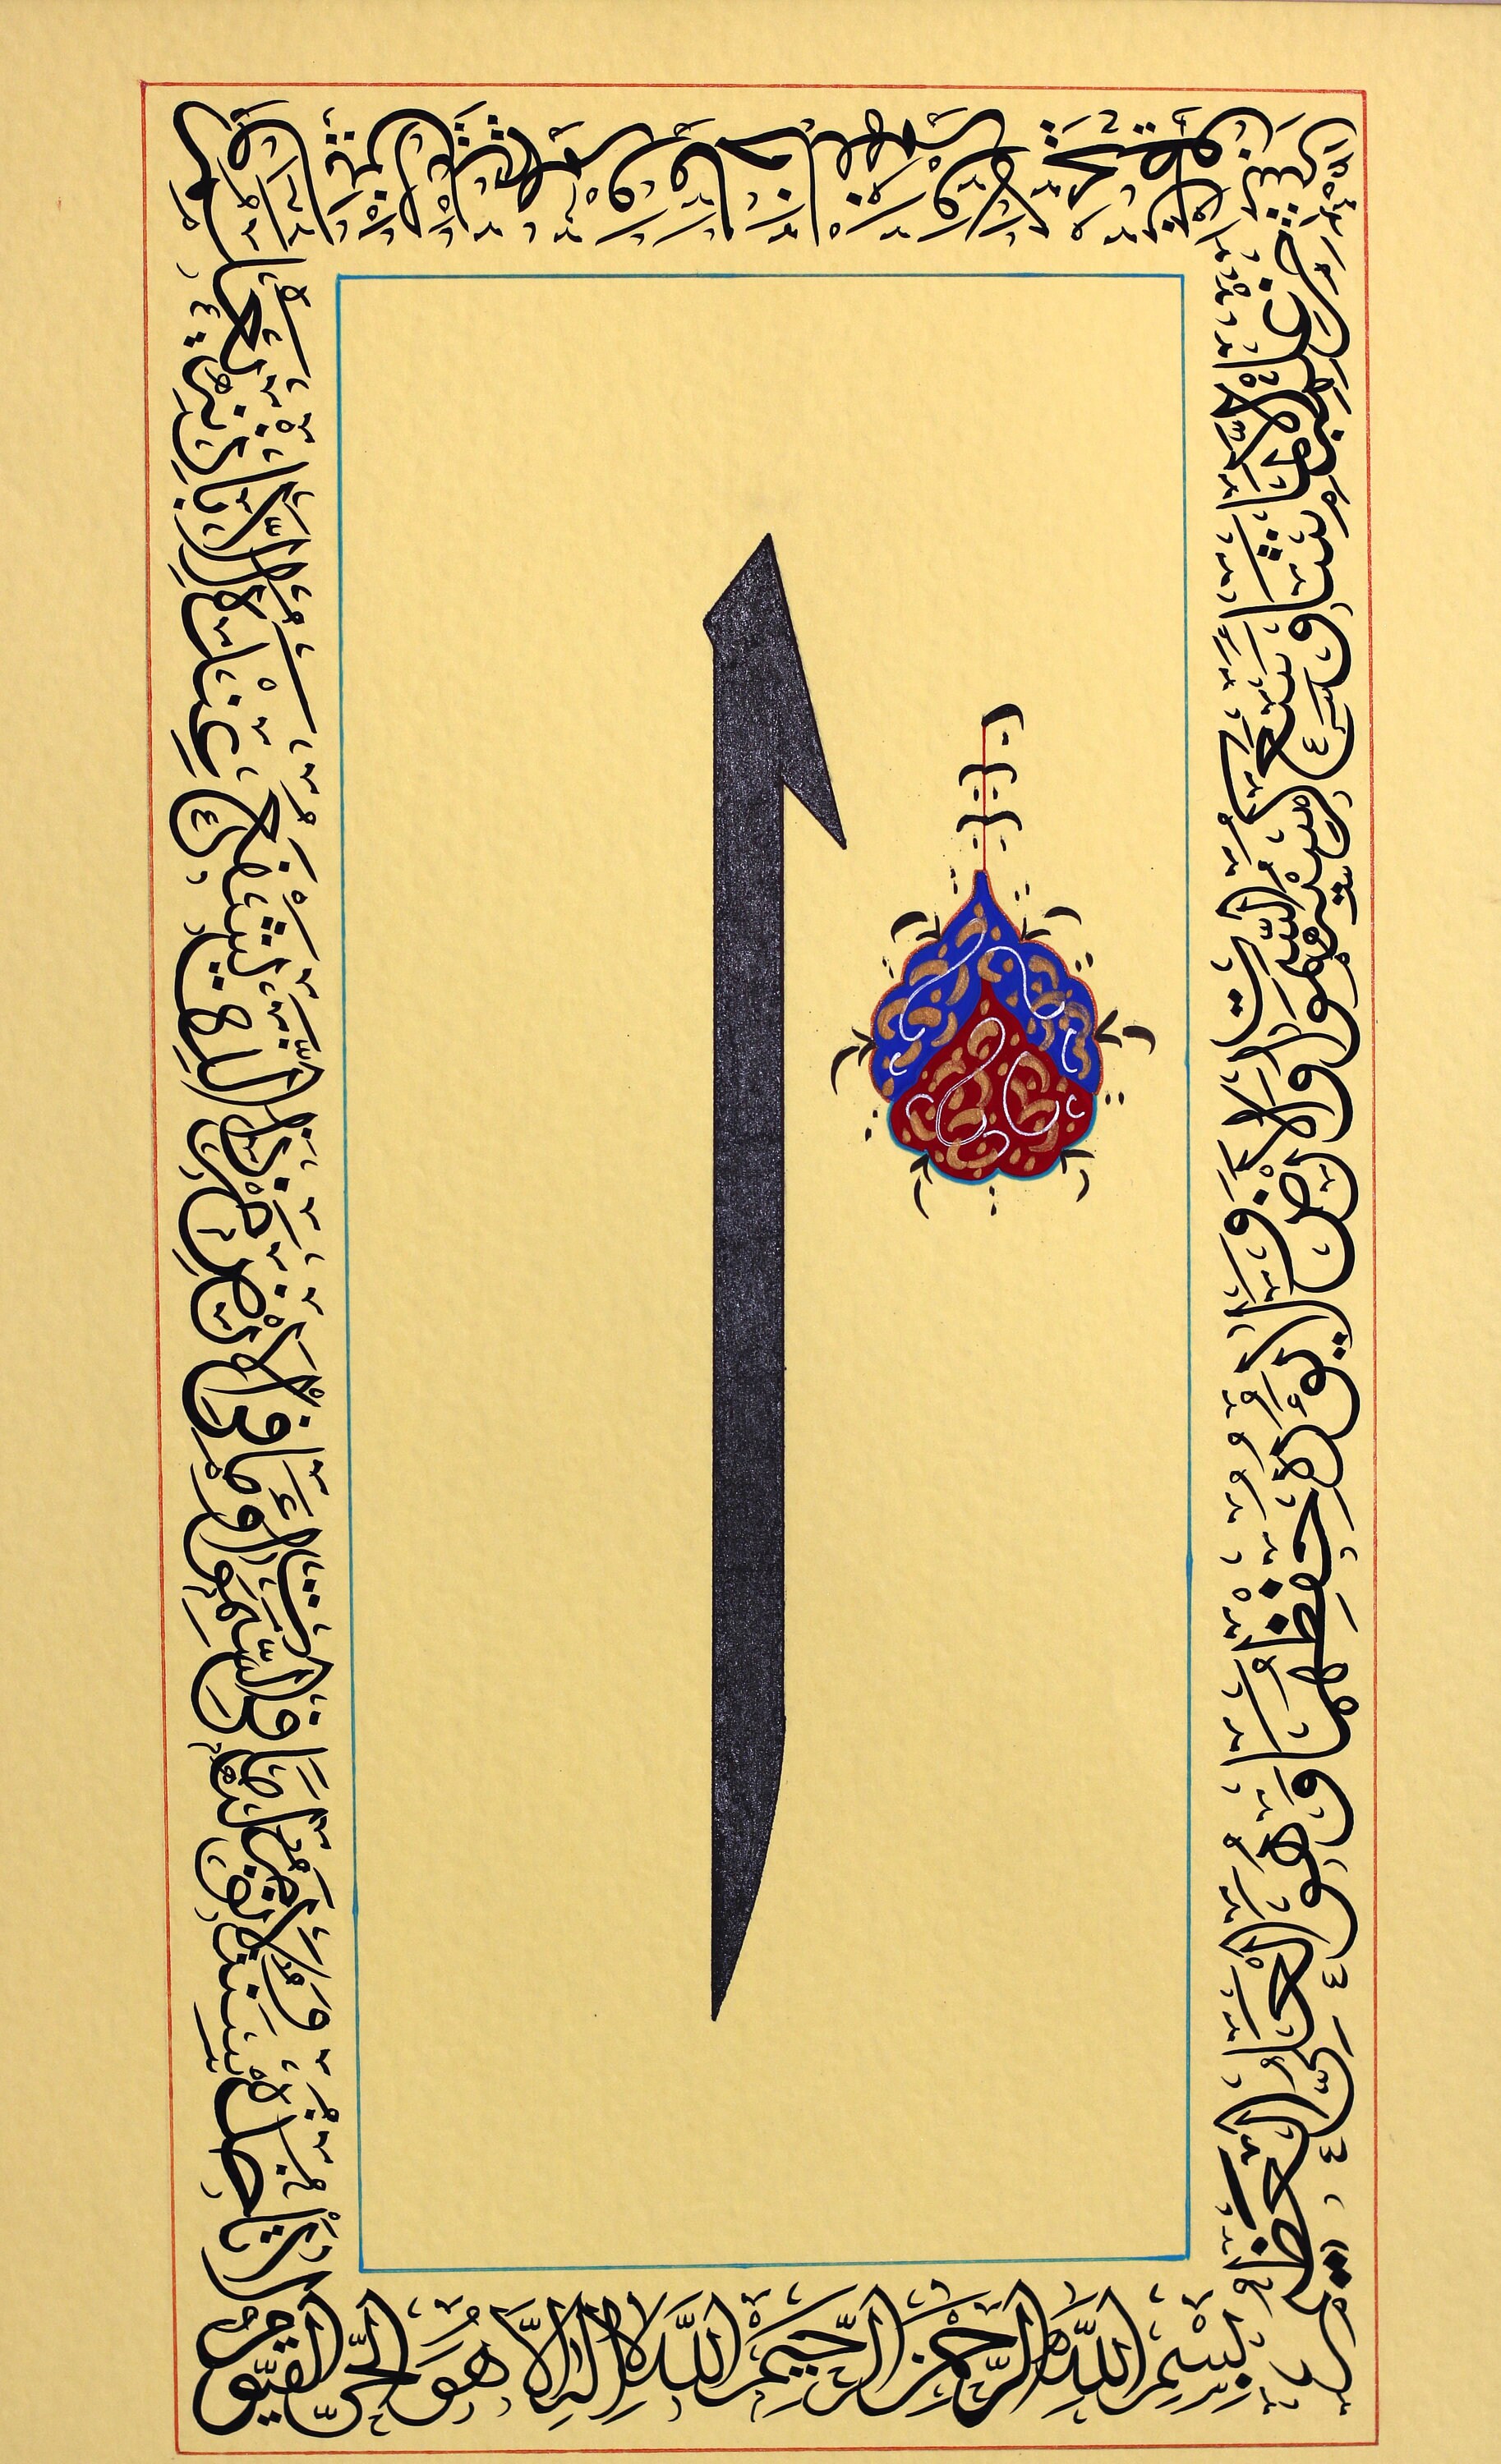 ا
بِسْمِ اللَّهِ الرَّحْمَٰنِ الرَّحِيمِ اللَّهُ لَا إِلَٰهَ إِلَّا هُوَ الْحَيُّ الْقَيُّومُ
لَا تَأْخُذُهُ سِنَةٌ وَلَا نَوْمٌ لَهُ مَا فِي السَّمَٰوَٰتِ وَمَا فِي الْأَرْضِ مَنْ ذَا الَّذِي يَشْفَعُ عِنْدَهُ إِلَّا بِإِذْنِهِ يَعْلَمُ
مَا بَيْنَ أَيْدِيهِمْ وَمَا خَلْفَهُمْ وَلَا يُحِيطُونَ
بِشَيْءٍ مِنْ عِلْمِهِ إِلَّا بِمَا شَاءَ وَسِعَ كُرْسِيُّهُ السَّمَٰوَٰتِ وَالْأَرْضَ وَلَا يَئُودُهُ حِفْظُهُمَا وَهُوَ الْعَلِيُّ الْعَظِيمُ